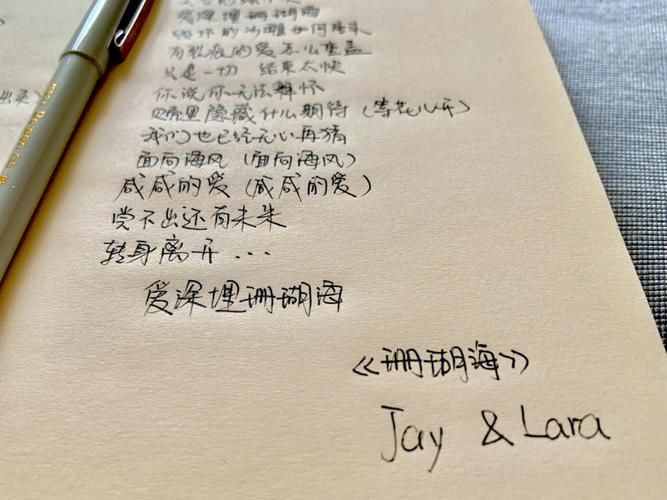 爱深埋珊瑚海
给你的沙雕如何重来
有裂痕的爱怎么重盖
只是一切 结束太快
你说你无法释怀
贝壳里隐藏什么期待 (等花儿开)
我们也已经无心再猜
面向海风 (面向海风)
咸咸的爱 (咸咸的爱)
尝不出还有未来
转身离开 ...
爱深埋珊瑚海
《珊瑚海》
Jay & Lara